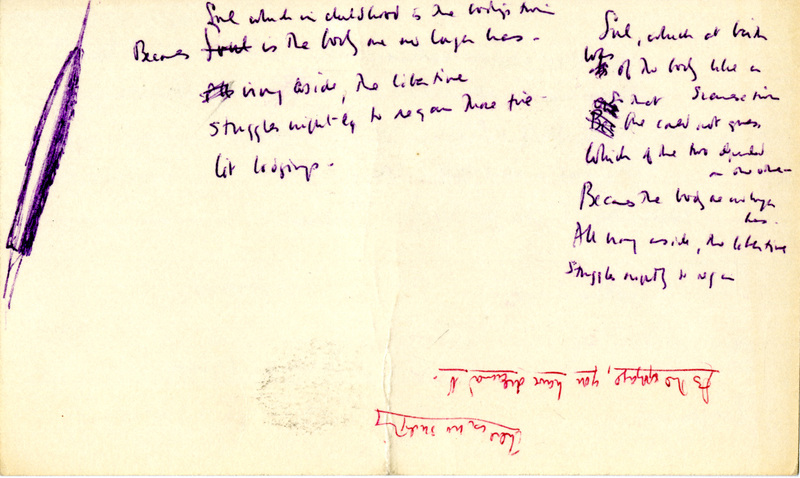 Soul which in childhood is the body's twin
Becomes Soul is the body one no longer has.
irony aside, the libertine
struggles nightly to regain those fire-
lit lodgings.
Soul, which at birth
Was of the body like a
that Siamese twin
One could not guess
Which of the two depended
on the other
Becomes the body one no longer
has.
All irony aside, the libertine
Struggles nightly to regain
As the voyage, you have dreamed it.
There is no